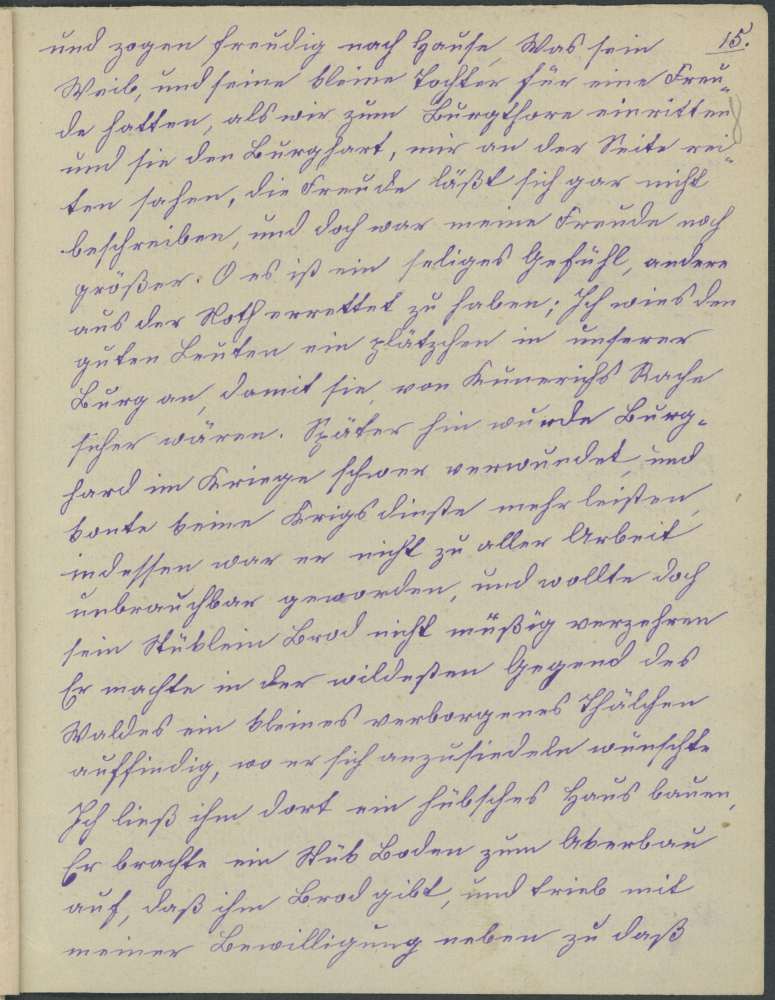 15.
und zogen freudig nach Hause, Was sein
Weib, und seine kleine Tochter für eine Freu-
de hatten, als wir zum Burgthore einritten
und sie den Burghart, mir an der Seite rei-
ten sahen, die Freude läßt sich gar nicht
beschreiben, und doch war meine Freude noch
größer. O es ist ein seliges Gefühl, andere
aus der Noth errettet zu haben; Ich wies den
guten Leuten ein plätzchen in unserer
Burg an, damit sie, von Kunerichs Rache
sicher wären. Später hin wurde Burg-
hard im Kriege schwer verwundet, und
konte keine Krigsdinste mehr leisten,
indessen war er nicht zu aller Arbeit
unbrauchbar geworden, und wollte doch
sein Stüklein Brod nicht müßig verzehren
Er machte in der wildesten Gegend des
Waldes ein kleines verborgenes Thälchen
auffindig, wo er sich anzusiedeln wünschte
Ich ließ ihm dort ein hübsches Haus bauen,
Er brachte ein Stük Boden zum Akerbau
auf, daß ihm Brod gibt, und trieb mit
meiner Bewilligung neben zu daß